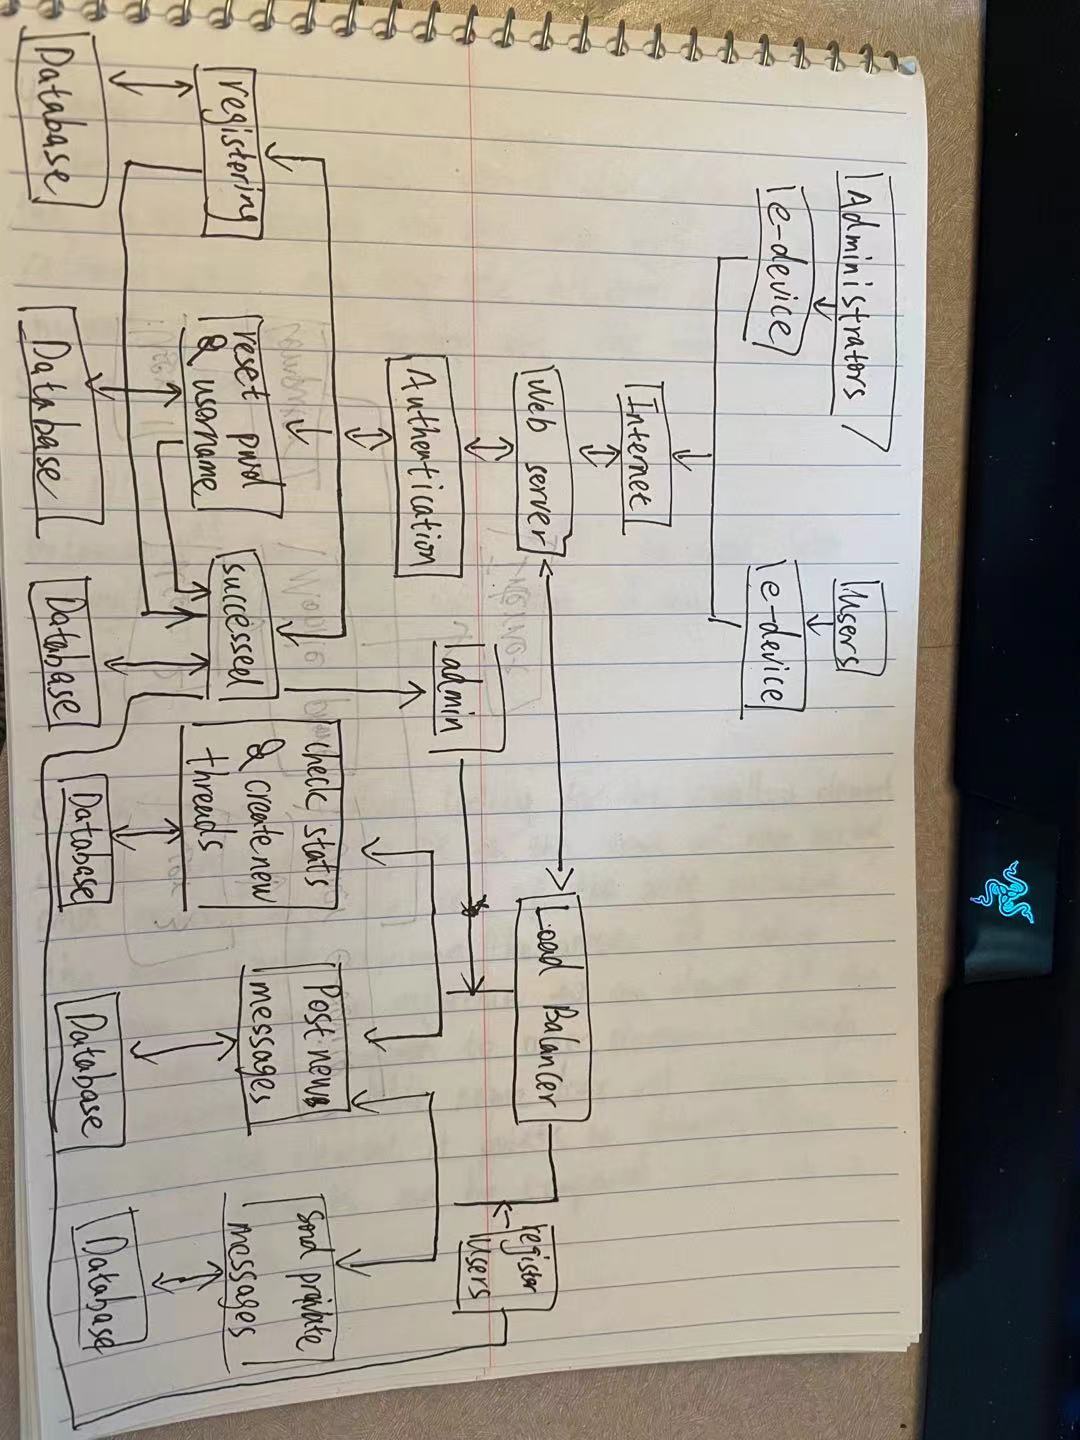 Administrators
Users
e-device
e-device
Internet
Web server
Load Balancer
Authentication
admin
register
Users
registering
reset pwd
& username
successed
check stats
& create new
threads
Post news
messages
Send private
messages
Database
Database
Database
Database
Database
Database